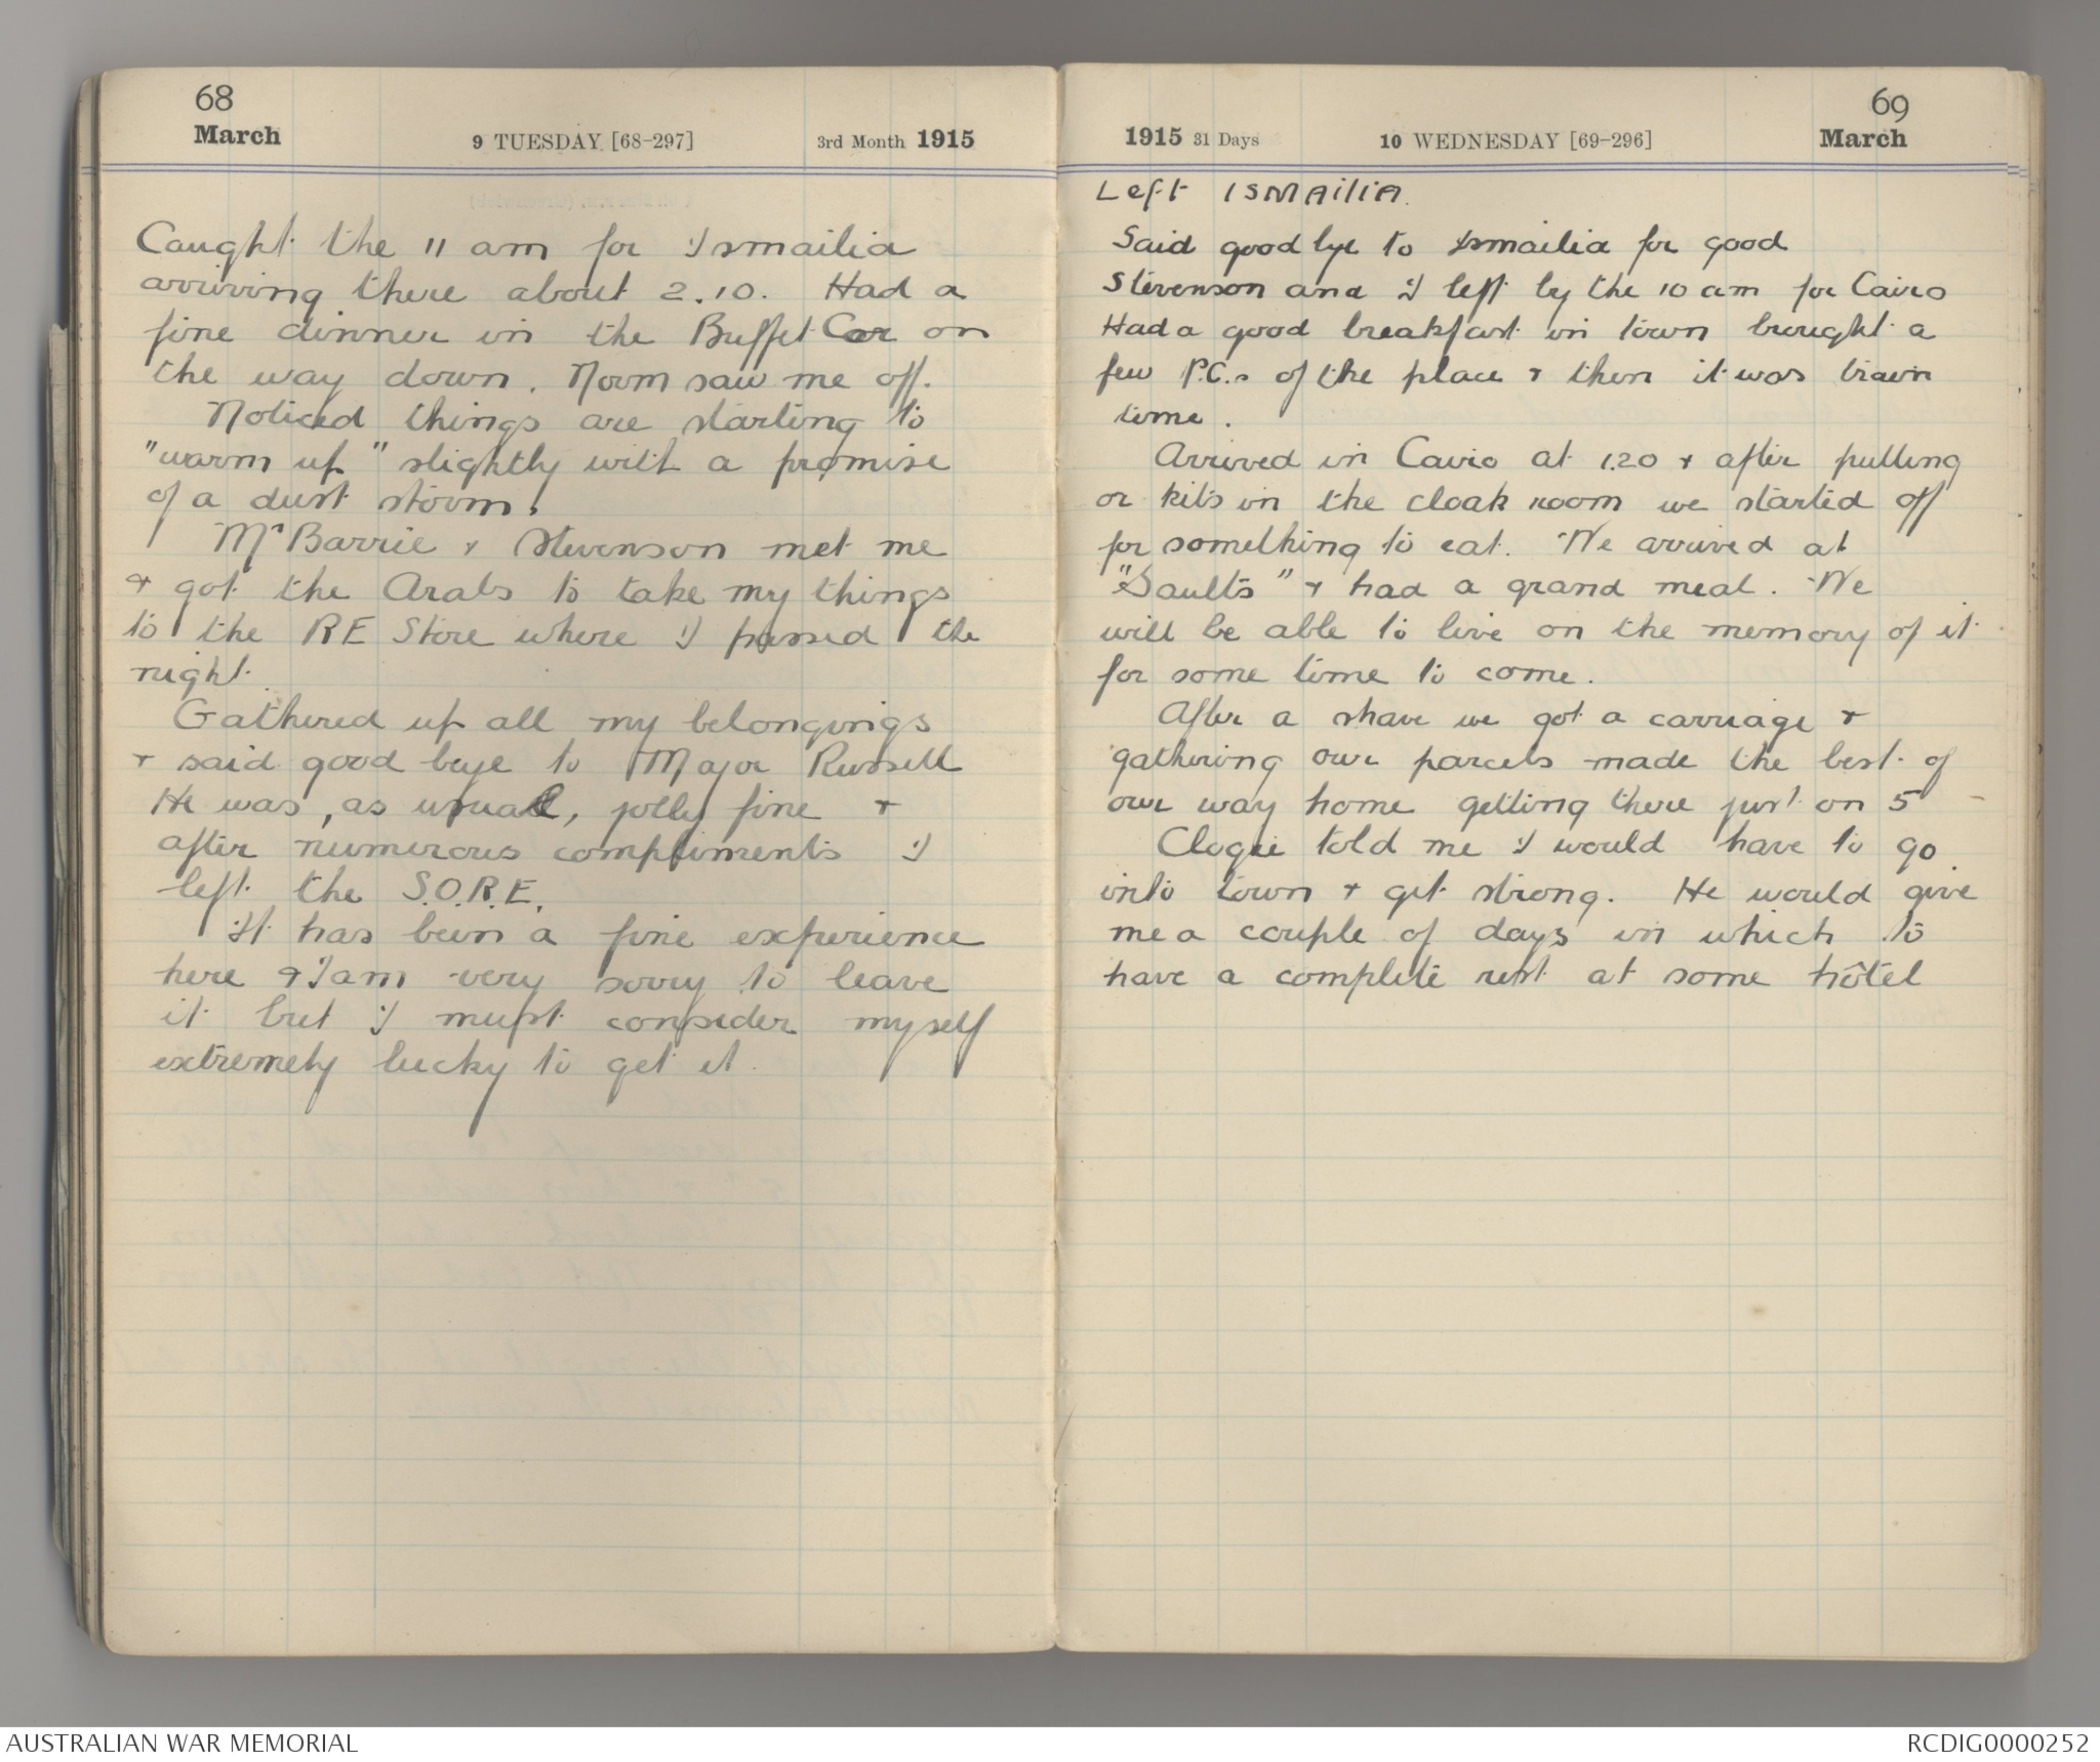 68
March
9 TUESDAY [68-297]
3rd Month 1915
Caught the 11 am for Ismailia
arriving there about 2.10. Had a
fine dinner in the Buffet Car on
the way down. Norm saw me off.
Noticed things are starting to
"warm up" slightly with a promise
of a dust storm.
Mr Barrie & Stevenson met me
& got the Arabs to take my things
to the RE Store where I passed the
night.
Gathered up all my belongings
& said good bye to Major Russell
He was, as usual, jolly fine &
after numerous compliments I
left the S.O.R.E.
It has been a fine experience
here & I am very sorry to leave
it but I must consider myself
extremely lucky to get it.
69
1915 31 Days
10 WEDNESDAY [69-296]
March
Left ISMAiliA.
Said good bye to Ismailia for good
Stevenson and I left by the 10 am for Cairo
Had a good breakfast in town brought a
few P.C.s of the place & then it was train
time.
Arrived in Cairo at 1.20 & after putting
or kits in the cloak room we started off
for something to eat. We arrived at
"Saults" & had a grand meal. We
will be able to live on the memory of it
for some time to come.
After a shave we got a carriage &
gathering our parcels made the best of
our way home getting there just on 5
Clogie told me I would have to go
into town & get strong. He would give
me a couple of days in which to
have a complete rest at some hôtel
AUSTRALIAN WAR MEMORIAL
RCDIG0000252